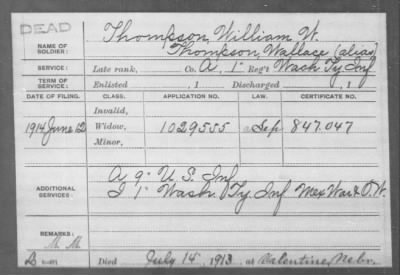 DEAD
NAME OF SOLDIER: Thompson, William W.
Thompson, Wallace (alias)
SERVICE: Late rank, Co. A, 1" Reg't Wash Ty Inf
TERM OF SERVICE: Enlisted , 1 Discharged , 1
DATE OF FILING. CLASS. APPLICATION NO. LAW. CERTIFICATE NO.
Invalid,
1914 June 12 Widow, 1029555 847.047
Minor,
A 9" U.S. Inf
ADDITIONAL SERVICES: I 1" Wash. Ty. Inf Mex War &
REMARKS: M M
Died July 14, 1913, at Valentine, Nebr.